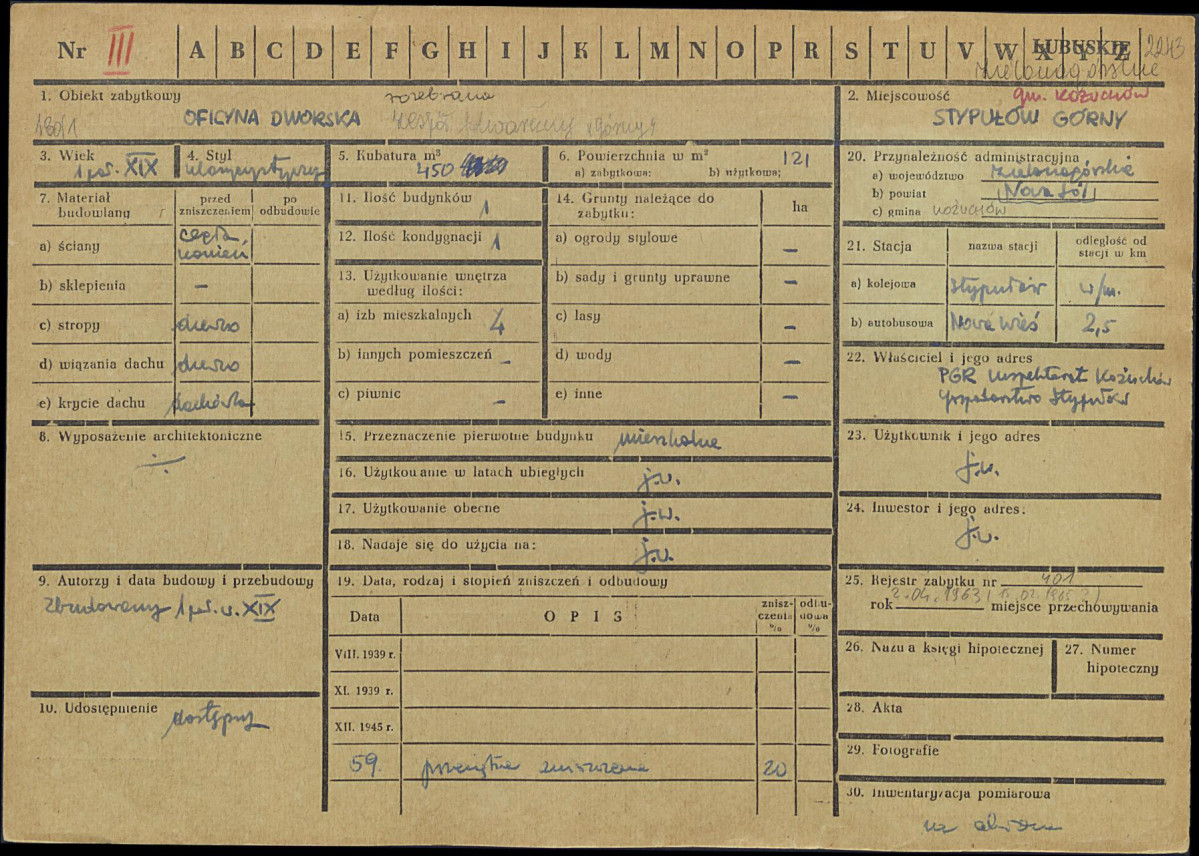 Nr III A B C D E F G H I J K L M N O P R S T U V W X Y Z
LUBUSKIE 2243
Zielonogórskie
1. Obiekt zabytkowy
rozebrana
OFICYNA DWORSKA
Zespół
2. Miejscowość gm. KOŻUCHÓW
STYPUŁÓW GÓRNY
3. Wiek
1 poł. XIX
4. Styl
klasycystyczny
5. Kubatura m³
450
6. Powierzchnia w m² 121
a) zabytkowa: b) użytkowa:
7. Materiał budowlany
przed zniszczeniem
po odbudowie
a) ściany cegła, kamień
b) sklepienia –
c) stropy drewno
d) wiązania dachu drewno
e) krycie dachu dachówka
8. Wyposażenie architektoniczne
÷
9. Autorzy i data budowy i przebudowy
Zbudowany 1 poł. w. XIX
10. Udostępnienie dostępny
11. Ilość budynków 1
12. Ilość kondygnacji 1
13. Użytkowanie wnętrza według ilości:
a) izb mieszkalnych 4
b) innych pomieszczeń –
c) piwnic –
14. Grunty należące do zabytku: ha
a) ogrody stylowe –
b) sady i grunty uprawne –
c) lasy –
d) wody –
e) inne –
15. Przeznaczenie pierwotne budynku mieszkalne
16. Użytkowanie w latach ubiegłych j.w.
17. Użytkowanie obecne j.w.
18. Nadaje się do użycia na: j.w.
19. Data, rodzaj i stopień zniszczeń i odbudowy
Data OPIS zniszczenia % odbudowa %
VIII. 1939 r.
XI. 1939 r.
XII. 1945 r.
59. zniszczenia 20
20. Przynależność administracyjna
a) województwo Zielonogórskie
b) powiat Nowa Sól
c) gmina KOŻUCHÓW
21. Stacja nazwa stacji odległość od stacji w km
a) kolejowa Stypułów w/m.
b) autobusowa Nowa Wieś 2,5
22. Właściciel i jego adres
PGR Inspektorat Kożuchów
Gospodarstwo Stypułów
23. Użytkownik i jego adres
j.w.
24. Inwestor i jego adres:
j.w.
25. Rejestr zabytku nr 401
2.04.1963
rok miejsce przechowywania
26. Nazwa księgi hipotecznej
27. Numer hipoteczny
28. Akta
29. Fotografie
30. Inwentaryzacja pomiarowa